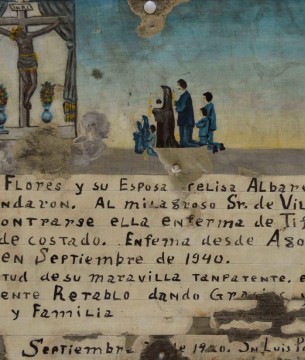 INRI
Flores y su Esposa relisa Albare
ndaron. Al milagroso Sr. de Vil
ontrarse ella enferma de Ti
de costado. Enfema desde Ago
en Septiembre de 1940.
tud de su maravilla tanpatente. e
ente Retablo dando Gra
y Familia
Septiembre de 1940. Sn Luis Po